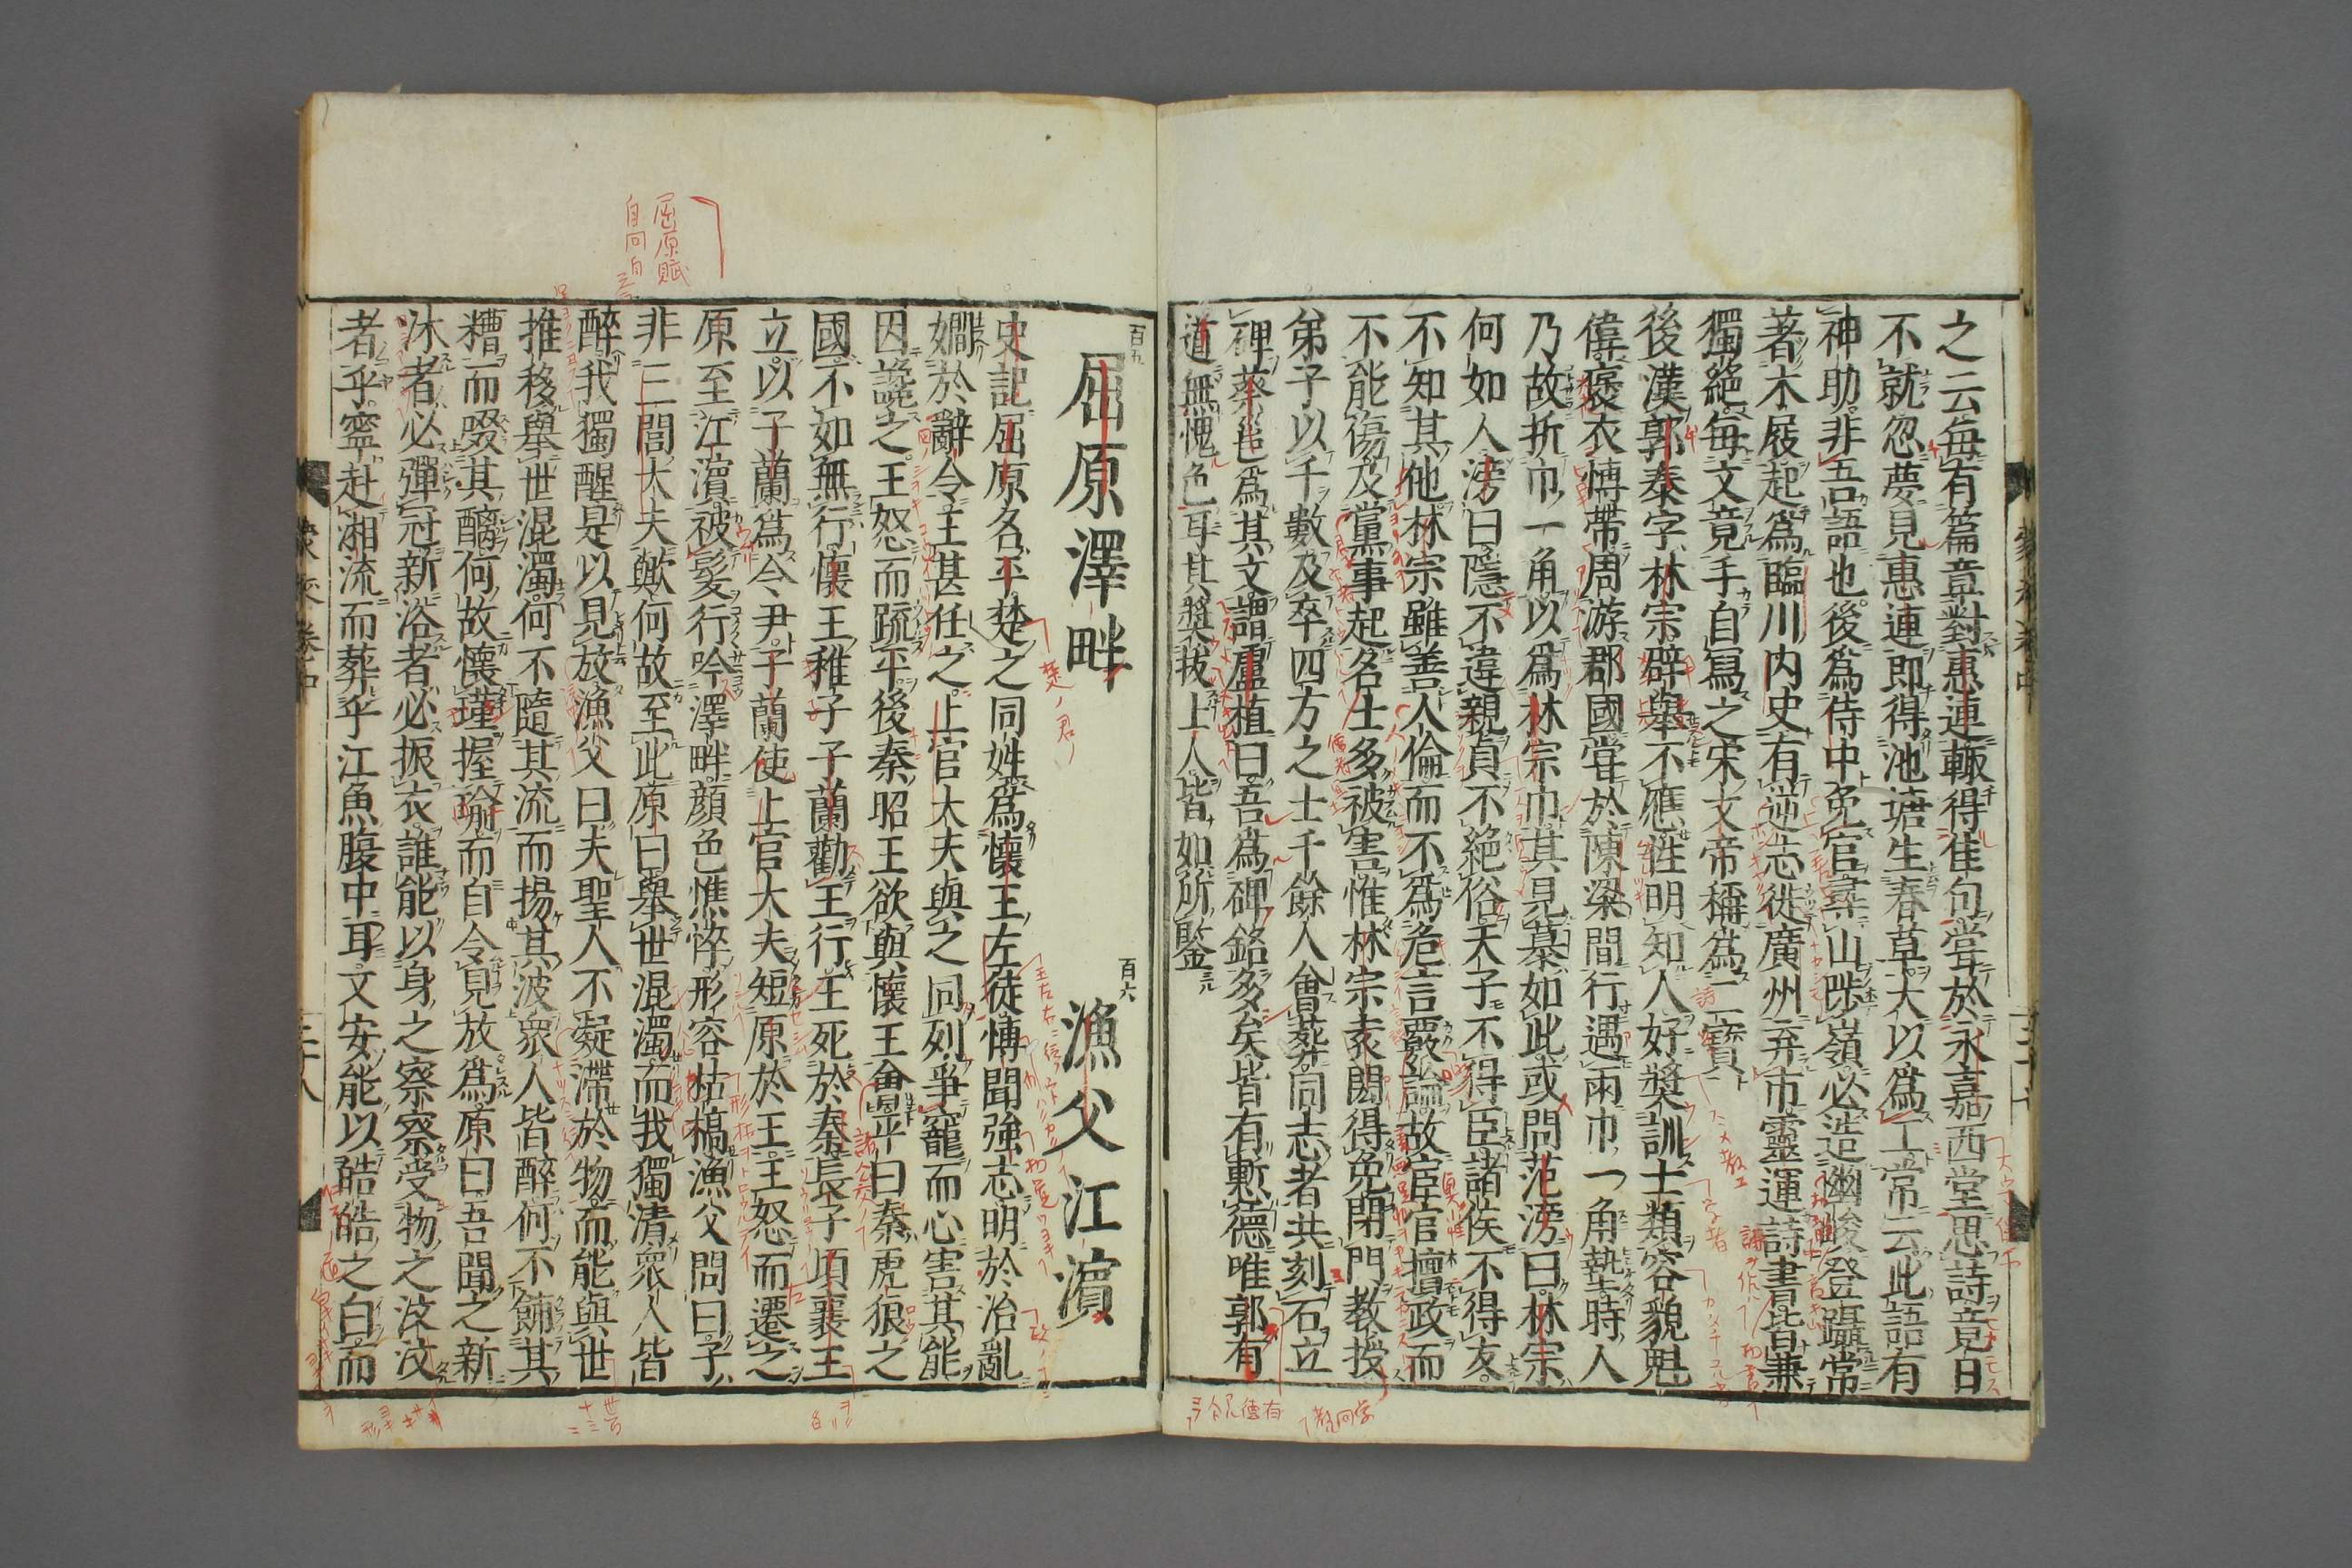 之云每有篇章對惠連輙得佳句嘗於永嘉西堂思詩竟日
不就忽夢見惠連即得池塘生春草大以爲工常云此語有
神助非吾語也後爲侍中免官尋山陟嶺必造幽峻登躡常
著木屐起爲臨川内史有逆志徙廣州弃市靈運詩書皆兼
獨絕每文竟手自寫之宋文帝稱爲二寶
後漢郭泰字林宗辟舉不應性明知人好奬訓士類容貌魁
偉褒衣博帶周游郡國嘗於陳梁間行遇雨巾一角墊時人
乃故折巾一角以爲林宗巾其見慕如此或問范滂曰林宗
何如人滂曰隱不違親貞不絕俗天子不得臣諸侯不得友
不知其他林宗雖善人倫而不爲危言覈論故宦官擅政而
不能傷及黨事起名士多被害惟林宗袁閎得免閉門教授
弟子以千數及卒四方之士千餘人會葬同志者共刻石立
碑蔡邕爲其文謂盧植曰吾爲碑銘多矣皆有慙德唯郭有
道無愧色耳其奬拔士人皆如所鑒
百五
屈原澤畔
百六
漁父江濵
史記屈原名平楚之同姓爲懷王左徒博聞強志明於治亂
嫺於辭令王甚任之上官大夫與之同列爭寵而心害其能
因讒之王怒而疏平後秦昭王欲與懷王會平曰秦虎狼之
國不如無行懷王稚子子蘭勸王行王死於秦長子項襄王
立以子蘭爲令尹子蘭使上官大夫短原於王王怒而遷之
原至江濵被髮行吟澤畔顏色憔悴形容枯槁漁父問曰子
非三閭大夫歟何故至此原曰舉世混濁而我獨清衆人皆
醉我獨醒是以見放漁父曰夫聖人不凝滯於物而能與世
推移舉世混濁何不隨其流而揚其波衆人皆醉何不餔其
糟而啜其醨何故懷瑾握瑜而自令見放爲原曰吾聞之新
沐者必彈冠新浴者必振衣誰能以身之察察受物之汶汶
者乎寧赴湘流而葬乎江魚腹中耳又安能以皓皓之白而
屈原賦